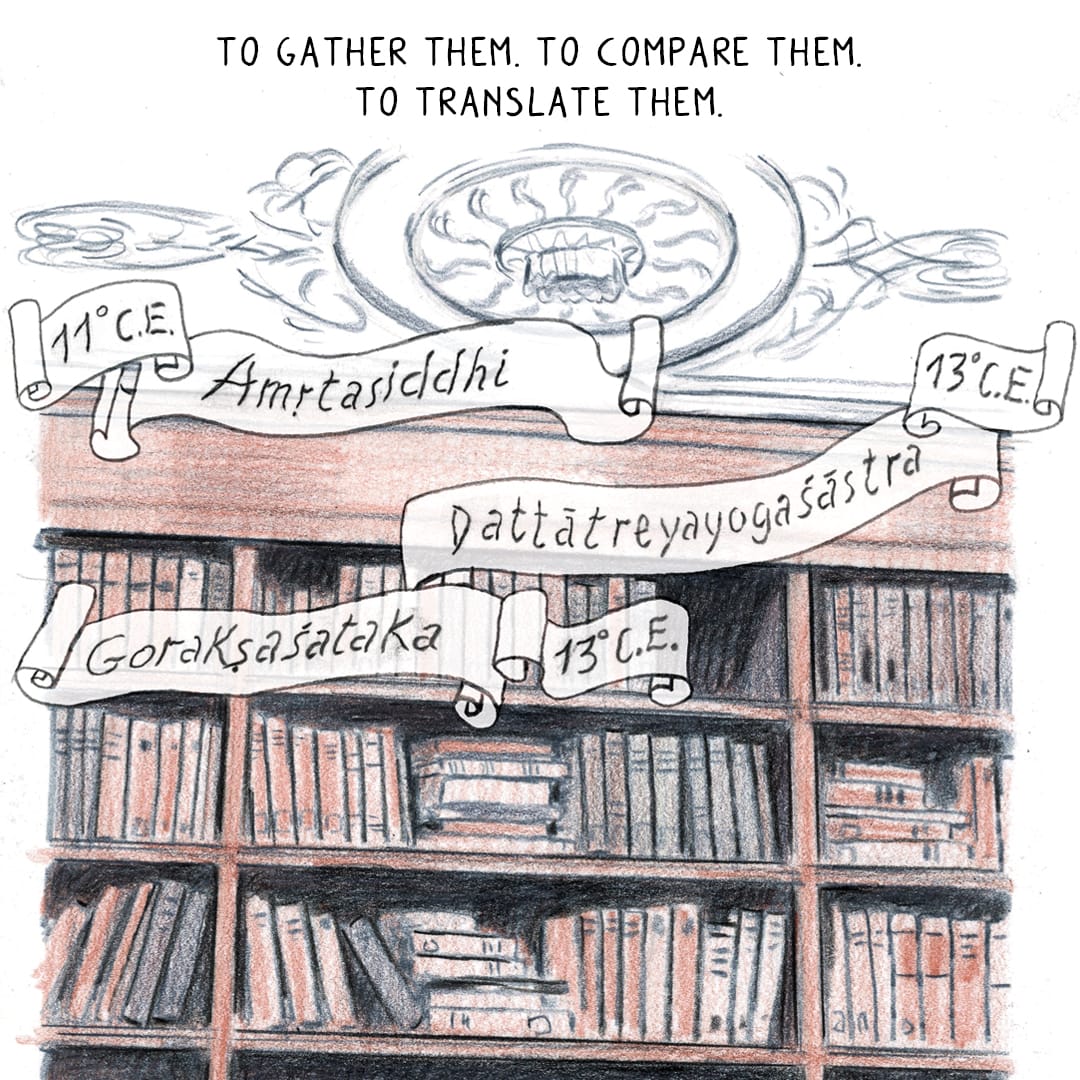 TO GATHER THEM. TO COMPARE THEM.
TO TRANSLATE THEM.
11° C.E.
Amṛtasiddhi
13° C.E.
Dattātreyayogaśāstra
Gorakṣaśataka
13° C.E.